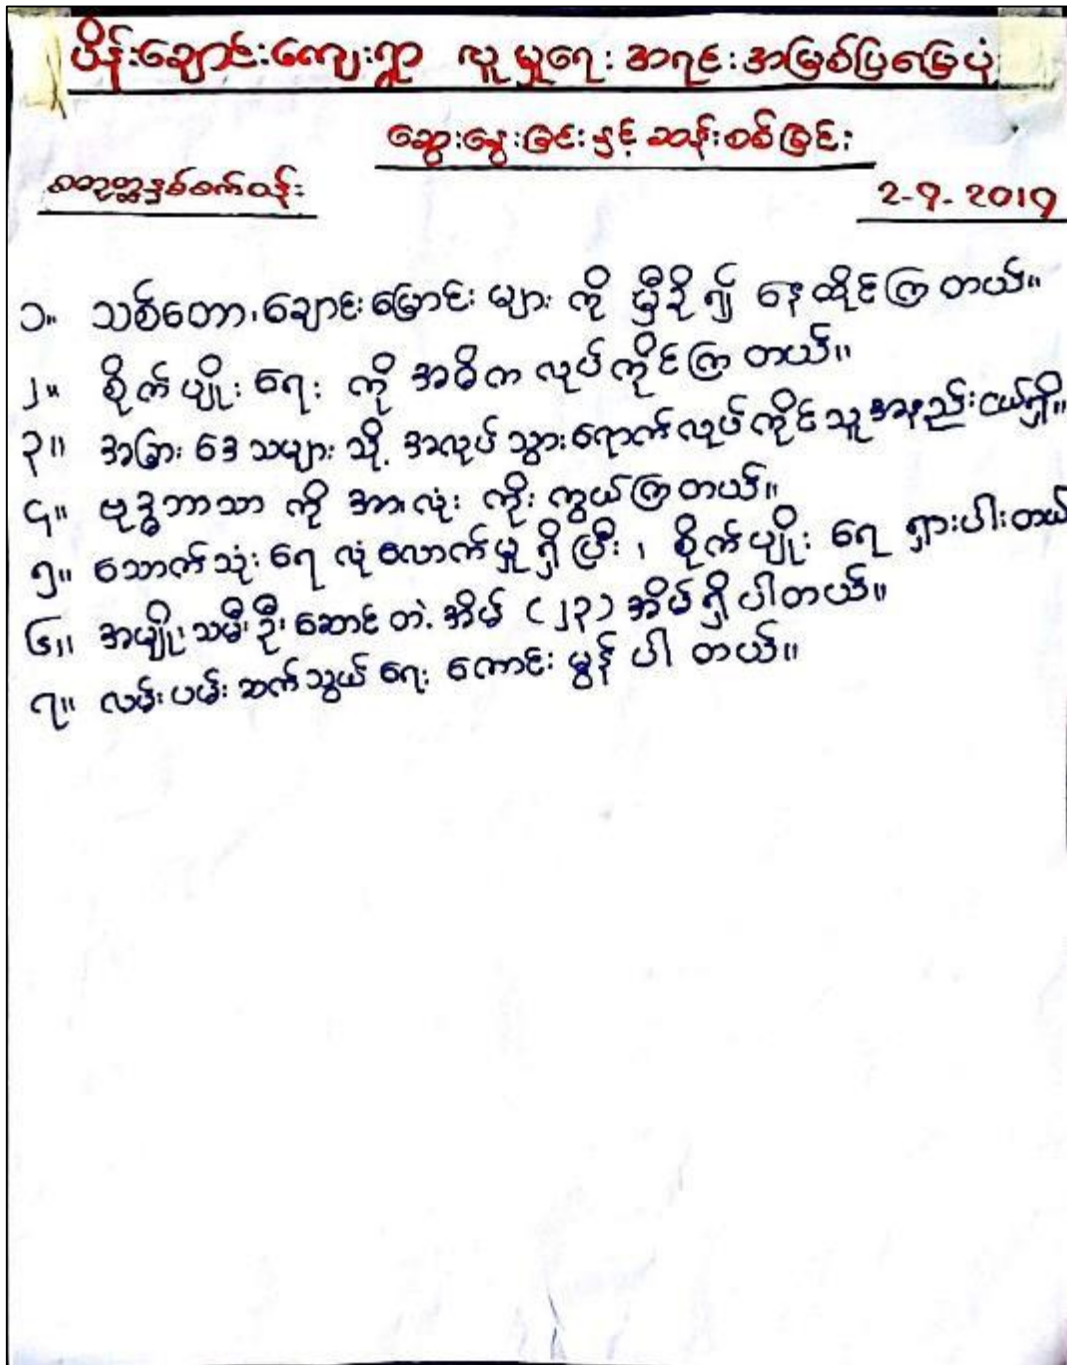 ပိန်းချောင်းကျေးရွာ လူမှုရေး အရင်းအမြစ်ပြမြေပုံ
ဆွေးနွေးခြင်းနှင့် ဆန်းစစ်ခြင်း
စတုတ္ထနှစ်စက်ဝန်း
2-9-2019
၁။ သစ်တော၊ချောင်းမြောင်း များ ကို မှီခို၍ နေထိုင်ကြတယ်။
၂။ စိုက်ပျိုးရေး ကို အဓိက လုပ်ကိုင်ကြတယ်။
၃။ အခြား ဒေသများ သို့ အလုပ် သွားရောက်လုပ်ကိုင်သူ အနည်းငယ်ရှိ။
၄။ ဗုဒ္ဓဘာသာ ကို အားလုံး ကိုးကွယ်ကြတယ်။
၅။ သောက်သုံးရေ လုံလောက်မှု ရှိပြီး ၊ စိုက်ပျိုး ရေ ရှားပါးတယ်
၆။ အမျိုးသမီးဦးဆောင်တဲ့ အိမ် (၂၃) အိမ်ရှိပါတယ်။
၇။ လမ်းပမ်းဆက်သွယ်ရေး ကောင်းမွန် ပါ တယ်။